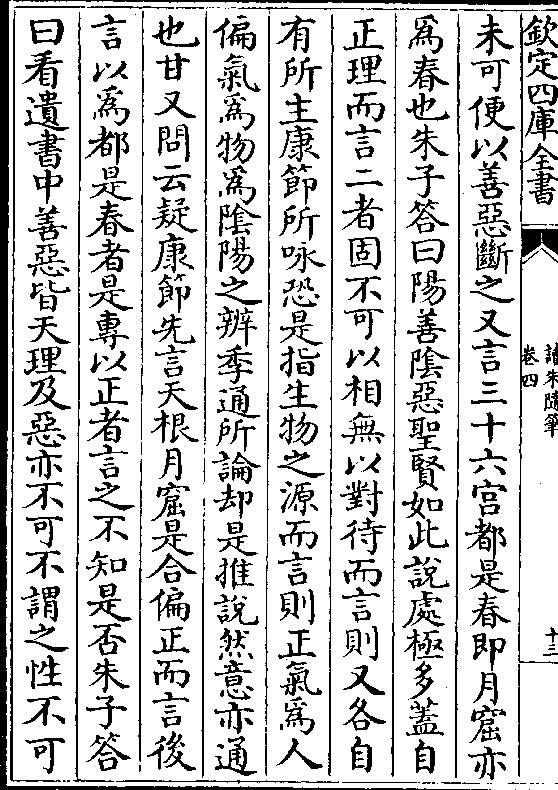 欽定四庫全書
讀朱隨筆
卷四
十三
未可便以善惡斷之又言三十六宮都是春即月窟亦
爲春也朱子答曰陽善陰惡聖賢如此說處極多蓋自
正理而言二者固不可以相無以對待而言則又各自
有所主康節所咏恐是指生物之源而言則正氣爲人
偏氣爲物爲陰陽之辨季通所論却是推說然意亦通
也甘又問云疑康節先言天根月窟是合偏正而言後
言以爲都是春者是專以正者言之不知是否朱子答
曰看遺書中善惡皆天理及惡亦不可不謂之性不可